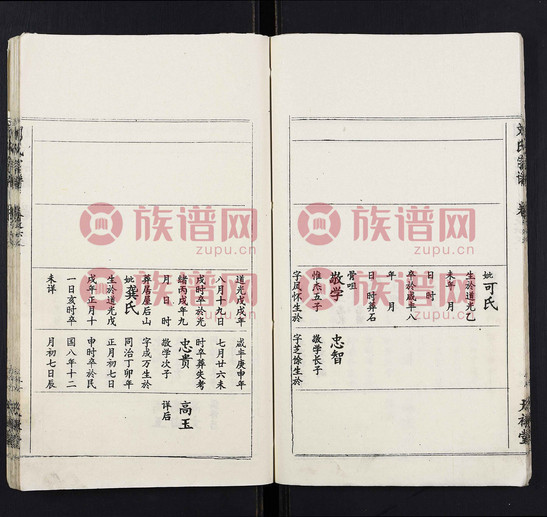 刘氏宗谱
妣可氏
生於道光乙
未年 月
日 时
卒於咸丰八
年 月
日 时葬石
骨咀
敬学
惟杰五子
字凤怀生於
忠智
敬学长子
字芝馀生於
道光戊戌年
八月十九日
戌时卒於光
绪丙戌年九
月 日 时
葬居屋后山
妣龚氏
生於道光戊
戌年正月十
一日亥时卒
未详
咸丰庚申年
七月廿六未
时卒葬失考
忠贵
敬学次子
字成万生於
同治丁卯年
正月初七日
申时卒於民
国八年十二
月初七日辰
高玉
详后
族谱网
zupu.cn
族谱网
zupu.cn